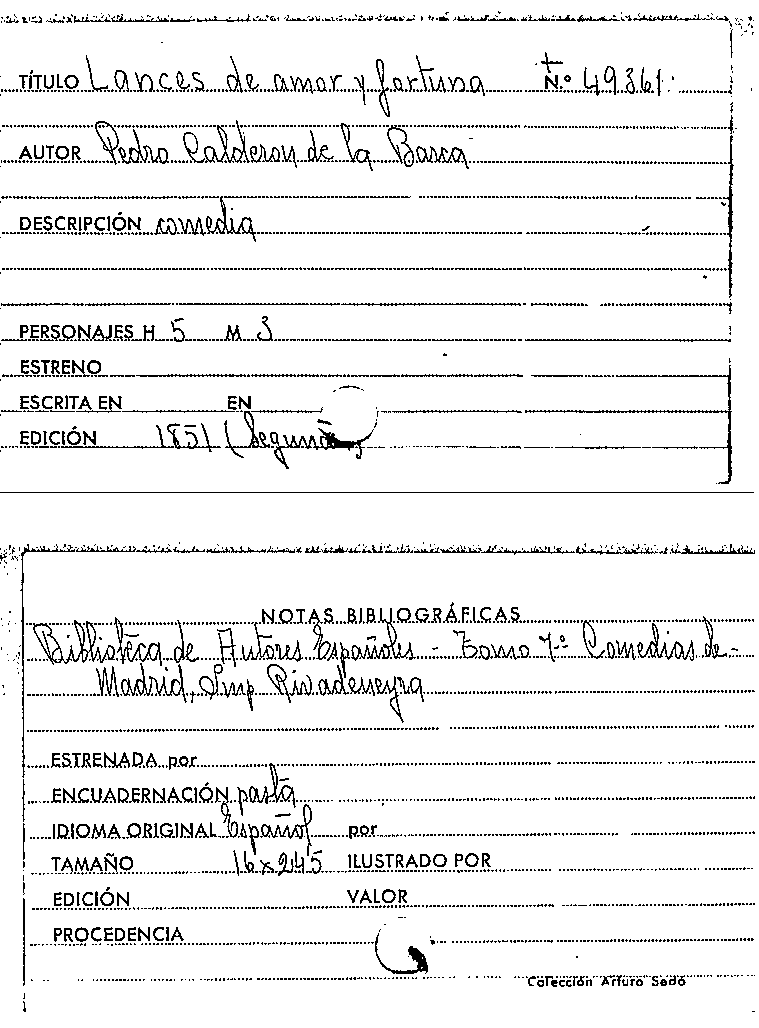 TÍTULO Lances de amor y fortuna N.º 49361
AUTOR Pedro Calderon de la Barca
DESCRIPCIÓN comedia
PERSONAJES H 5 M 3
ESTRENO
ESCRITA EN EN
EDICIÓN 1851 (Segunda)
NOTAS BIBLIOGRÁFICAS
Biblioteca de Autores Españoles - Tomo 7º Comedias de-
Madrid, Imp Rivadeneyra
ESTRENADA por
ENCUADERNACIÓN pasta
IDIOMA ORIGINAL Español por
TAMAÑO 16 x 24'5 ILUSTRADO POR
EDICIÓN VALOR
PROCEDENCIA
Colección Arturo Sedó